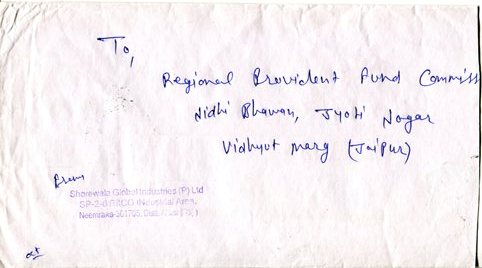 To,
Regional Provident Fund Commiss
Nidhi Bhawan, Jyoti Nagar
Vidhyut Marg (Jaipur)
From
Shorewala Global Industries (P) Ltd
Industrial Area,
Neemrana-301705, Dist.